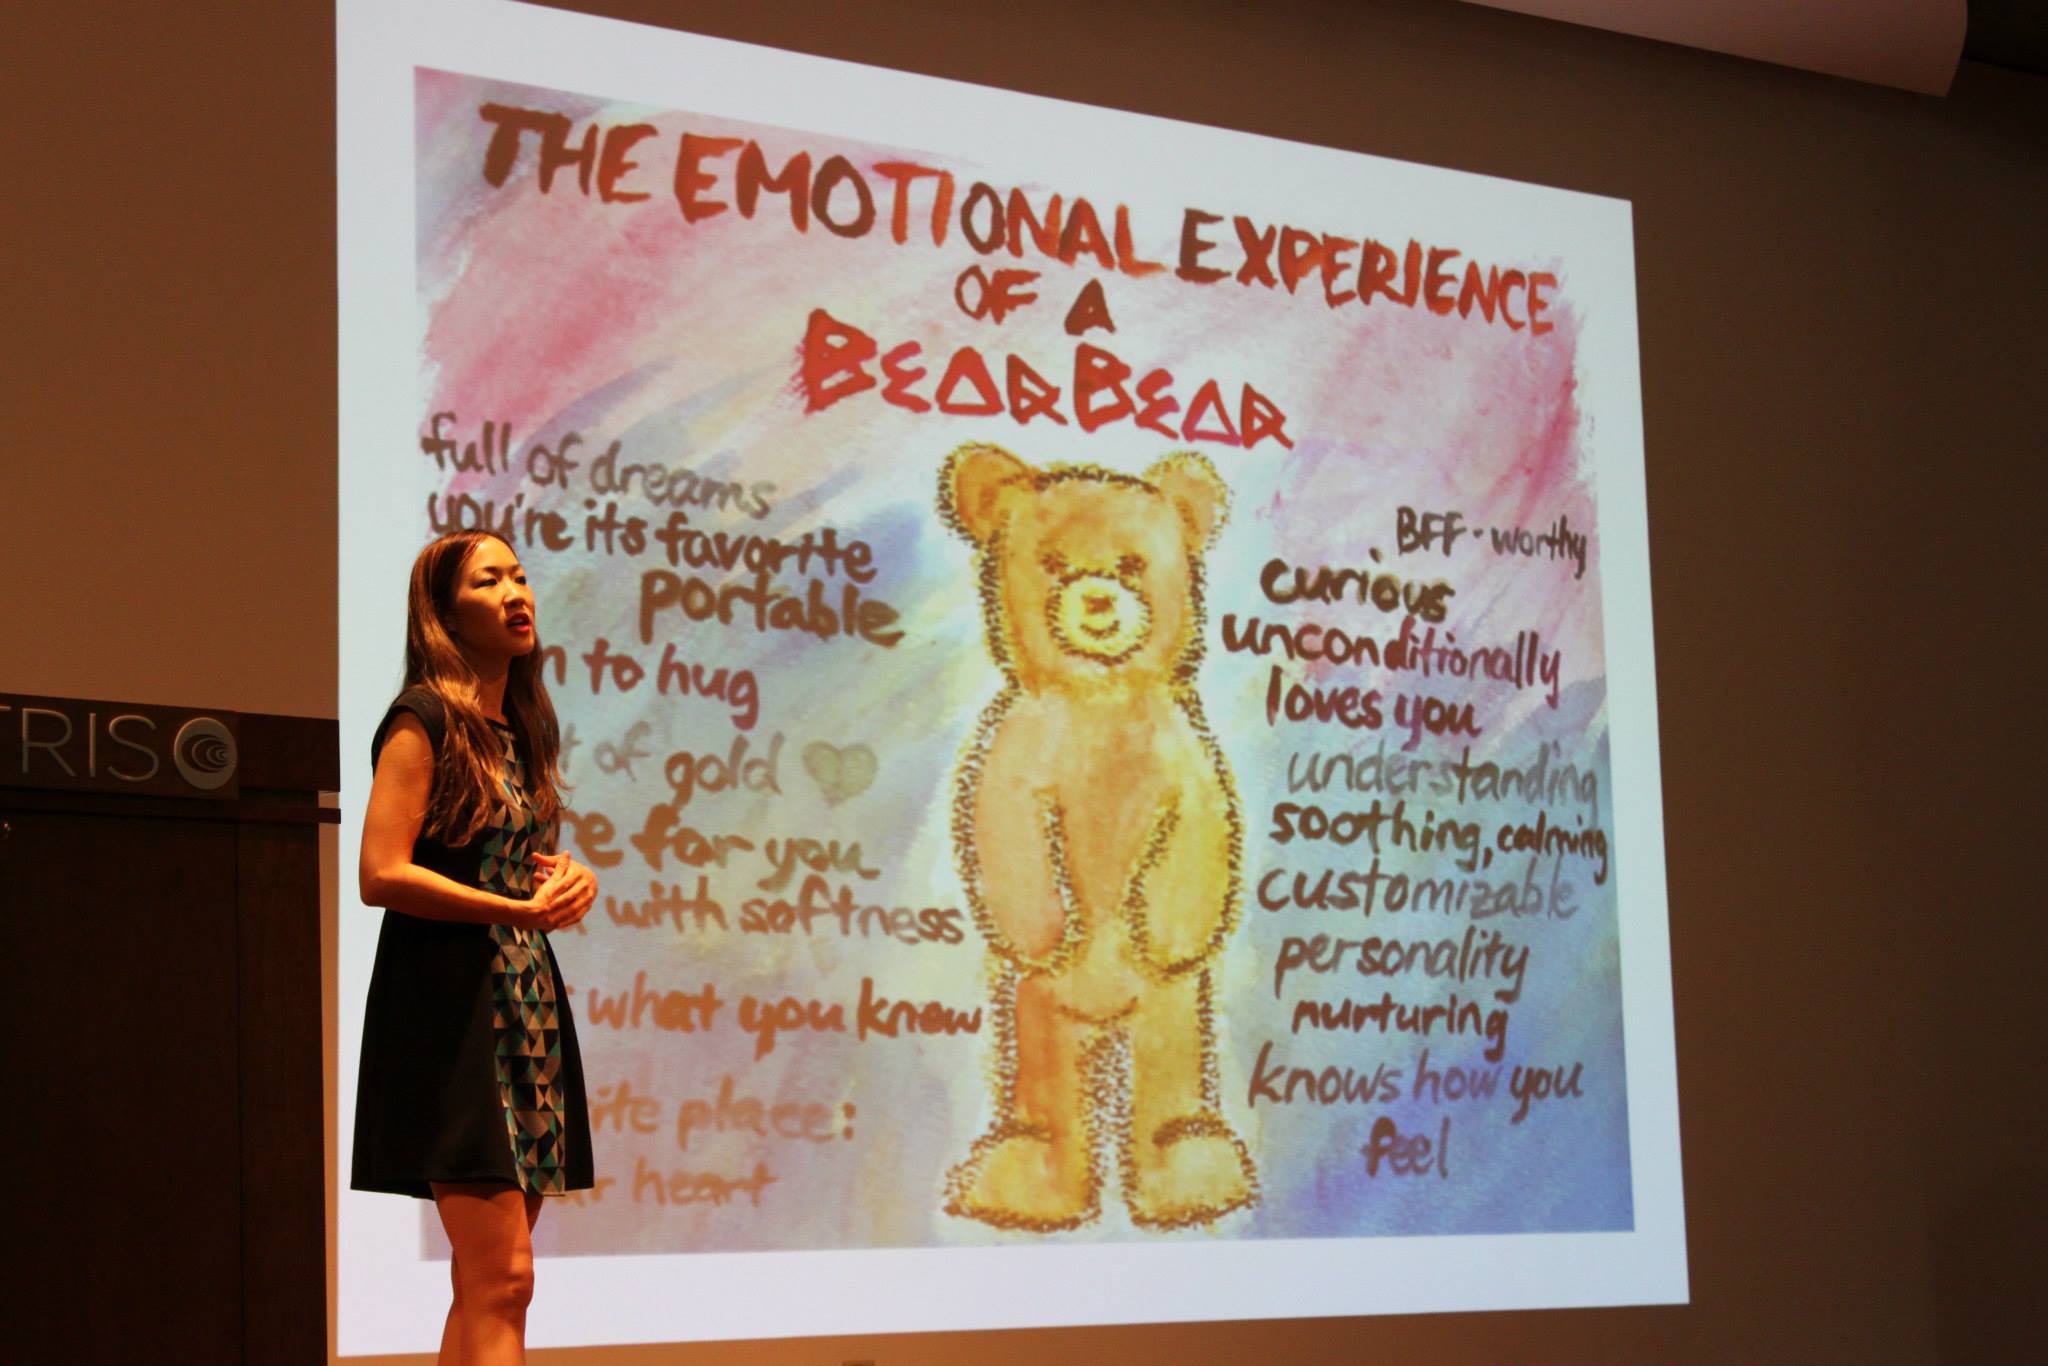 THE EMOTIONAL EXPERIENCE
OF A
BEARBEAR
full of dreams
you're its favorite
portable
to hug
of gold
for you
with softness
what you know
place:
heart
BFF-worthy
curious
unconditionally
loves you
understanding
soothing, calming
customizable
personality
nurturing
knows how you
feel
TRIS